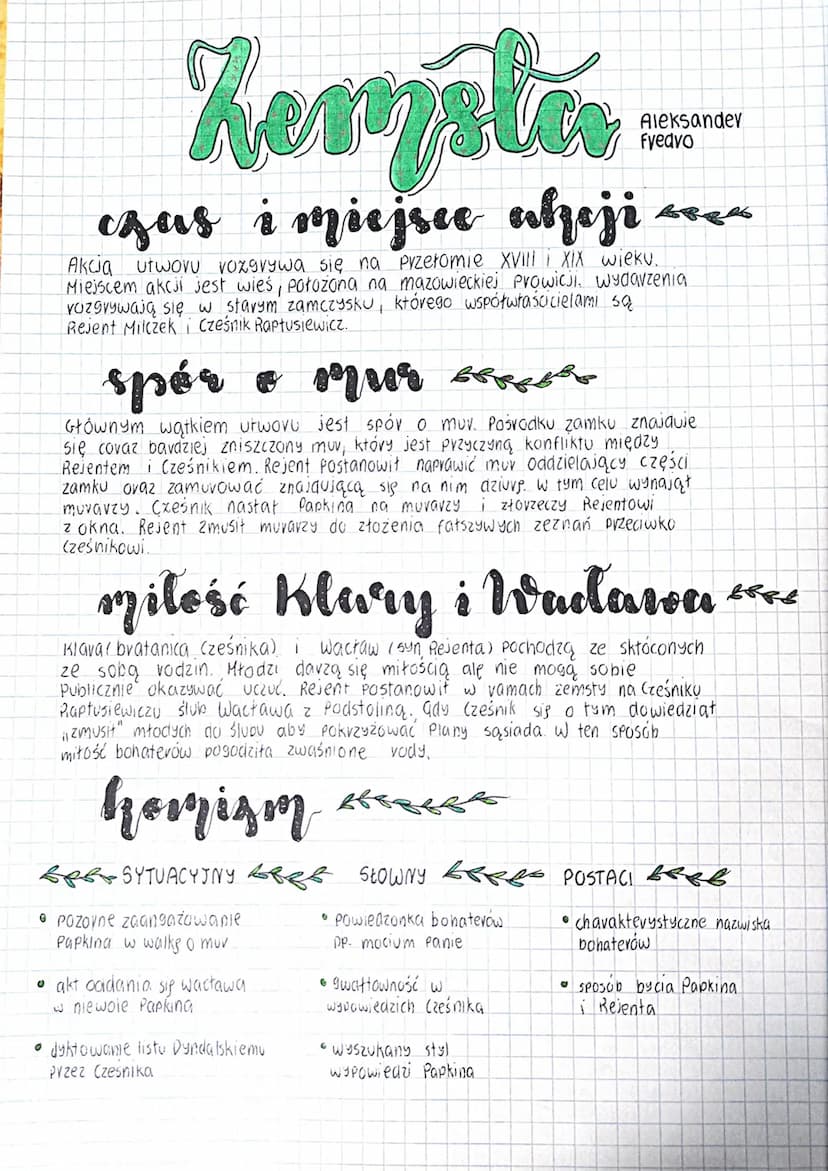 Zemsta
Aleksander
Fredro
czas i miejsce akcji
Akcja utworu rozgrywa się na przełomie XVIII i XIX wieku.
Miejscem akcji jest wieś, położona na mazowieckiej prowicji. Wydarzenia
rozgrywają się w starym zamczysku, którego współwłaścicielami są
Rejent Milczek i Cześnik Raptusiewicz.
spór o mur
Głównym wątkiem utworu jest spór o mur. Pośrodku zamku znajduje
się coraz bardziej zniszczony mur, który jest przyczyną konfliktu między
Rejentem i Cześnikiem. Rejent postanowił naprawić mur oddzielający części
zamku oraz zamurować znajdującą się na nim dziurę. W tym celu wynajął
murarzy. Cześnik nasłał Papkina na murarzy i złorzeczy Rejentowi
z okna. Rejent zmusił murarzy do złożenia fałszywych zeznań przeciwko
Cześnikowi.
miłość Klary i Wacława
Klara (bratanica Cześnika) i Wacław (syn Rejenta) pochodzą ze skłóconych
ze sobą rodzin. Młodzi darzą się miłością ale nie mogą sobie
publicznie okazywać uczuć. Rejent postanowił w ramach zemsty na Cześniku
Raptusiewiczu ślub Wacława z Podstoliną. Gdy Cześnik się o tym dowiedział
"zmusił" młodych do ślubu aby pokrzyżować plany sąsiada. W ten sposób
miłość bohaterów pogodziła zwaśnione rody.
komizm
SYTUACYJNY SŁOWNY POSTACI
• pozorne zaangażowanie
Papkina w walkę o mur
• akt oddania się Wacława
w niewole Papkina
• dyktowanie listu Dyndalskiemu
przez Cześnika
• powiedzonka bohaterów
np. mocium panie
• gwałtowność w
wypowiedzich Cześnika
• wyszukany styl
wypowiedzi Papkina
• charakterystyczne nazwiska
bohaterów
• sposób bycia Papkina
i Rejenta